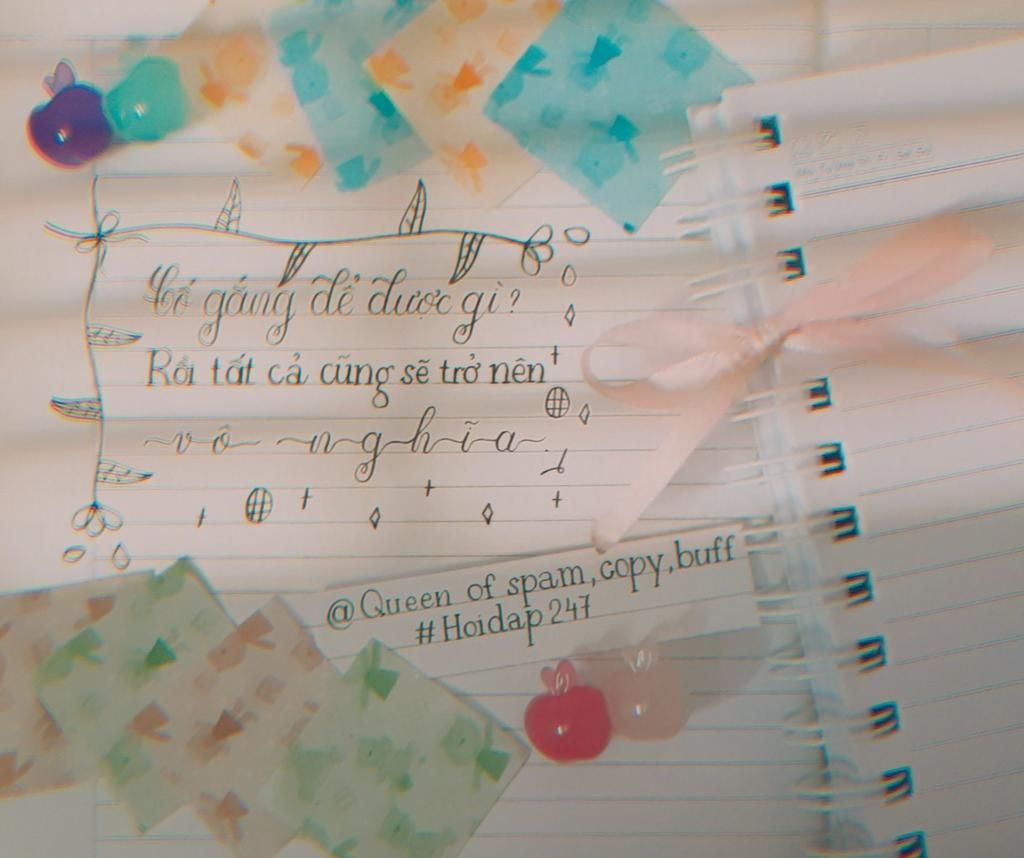 Cố gắng để được gì?
Rồi tất cả cũng sẽ trở nên
vô nghĩa
@Queen of spam,copy,buff
#Hoidap247